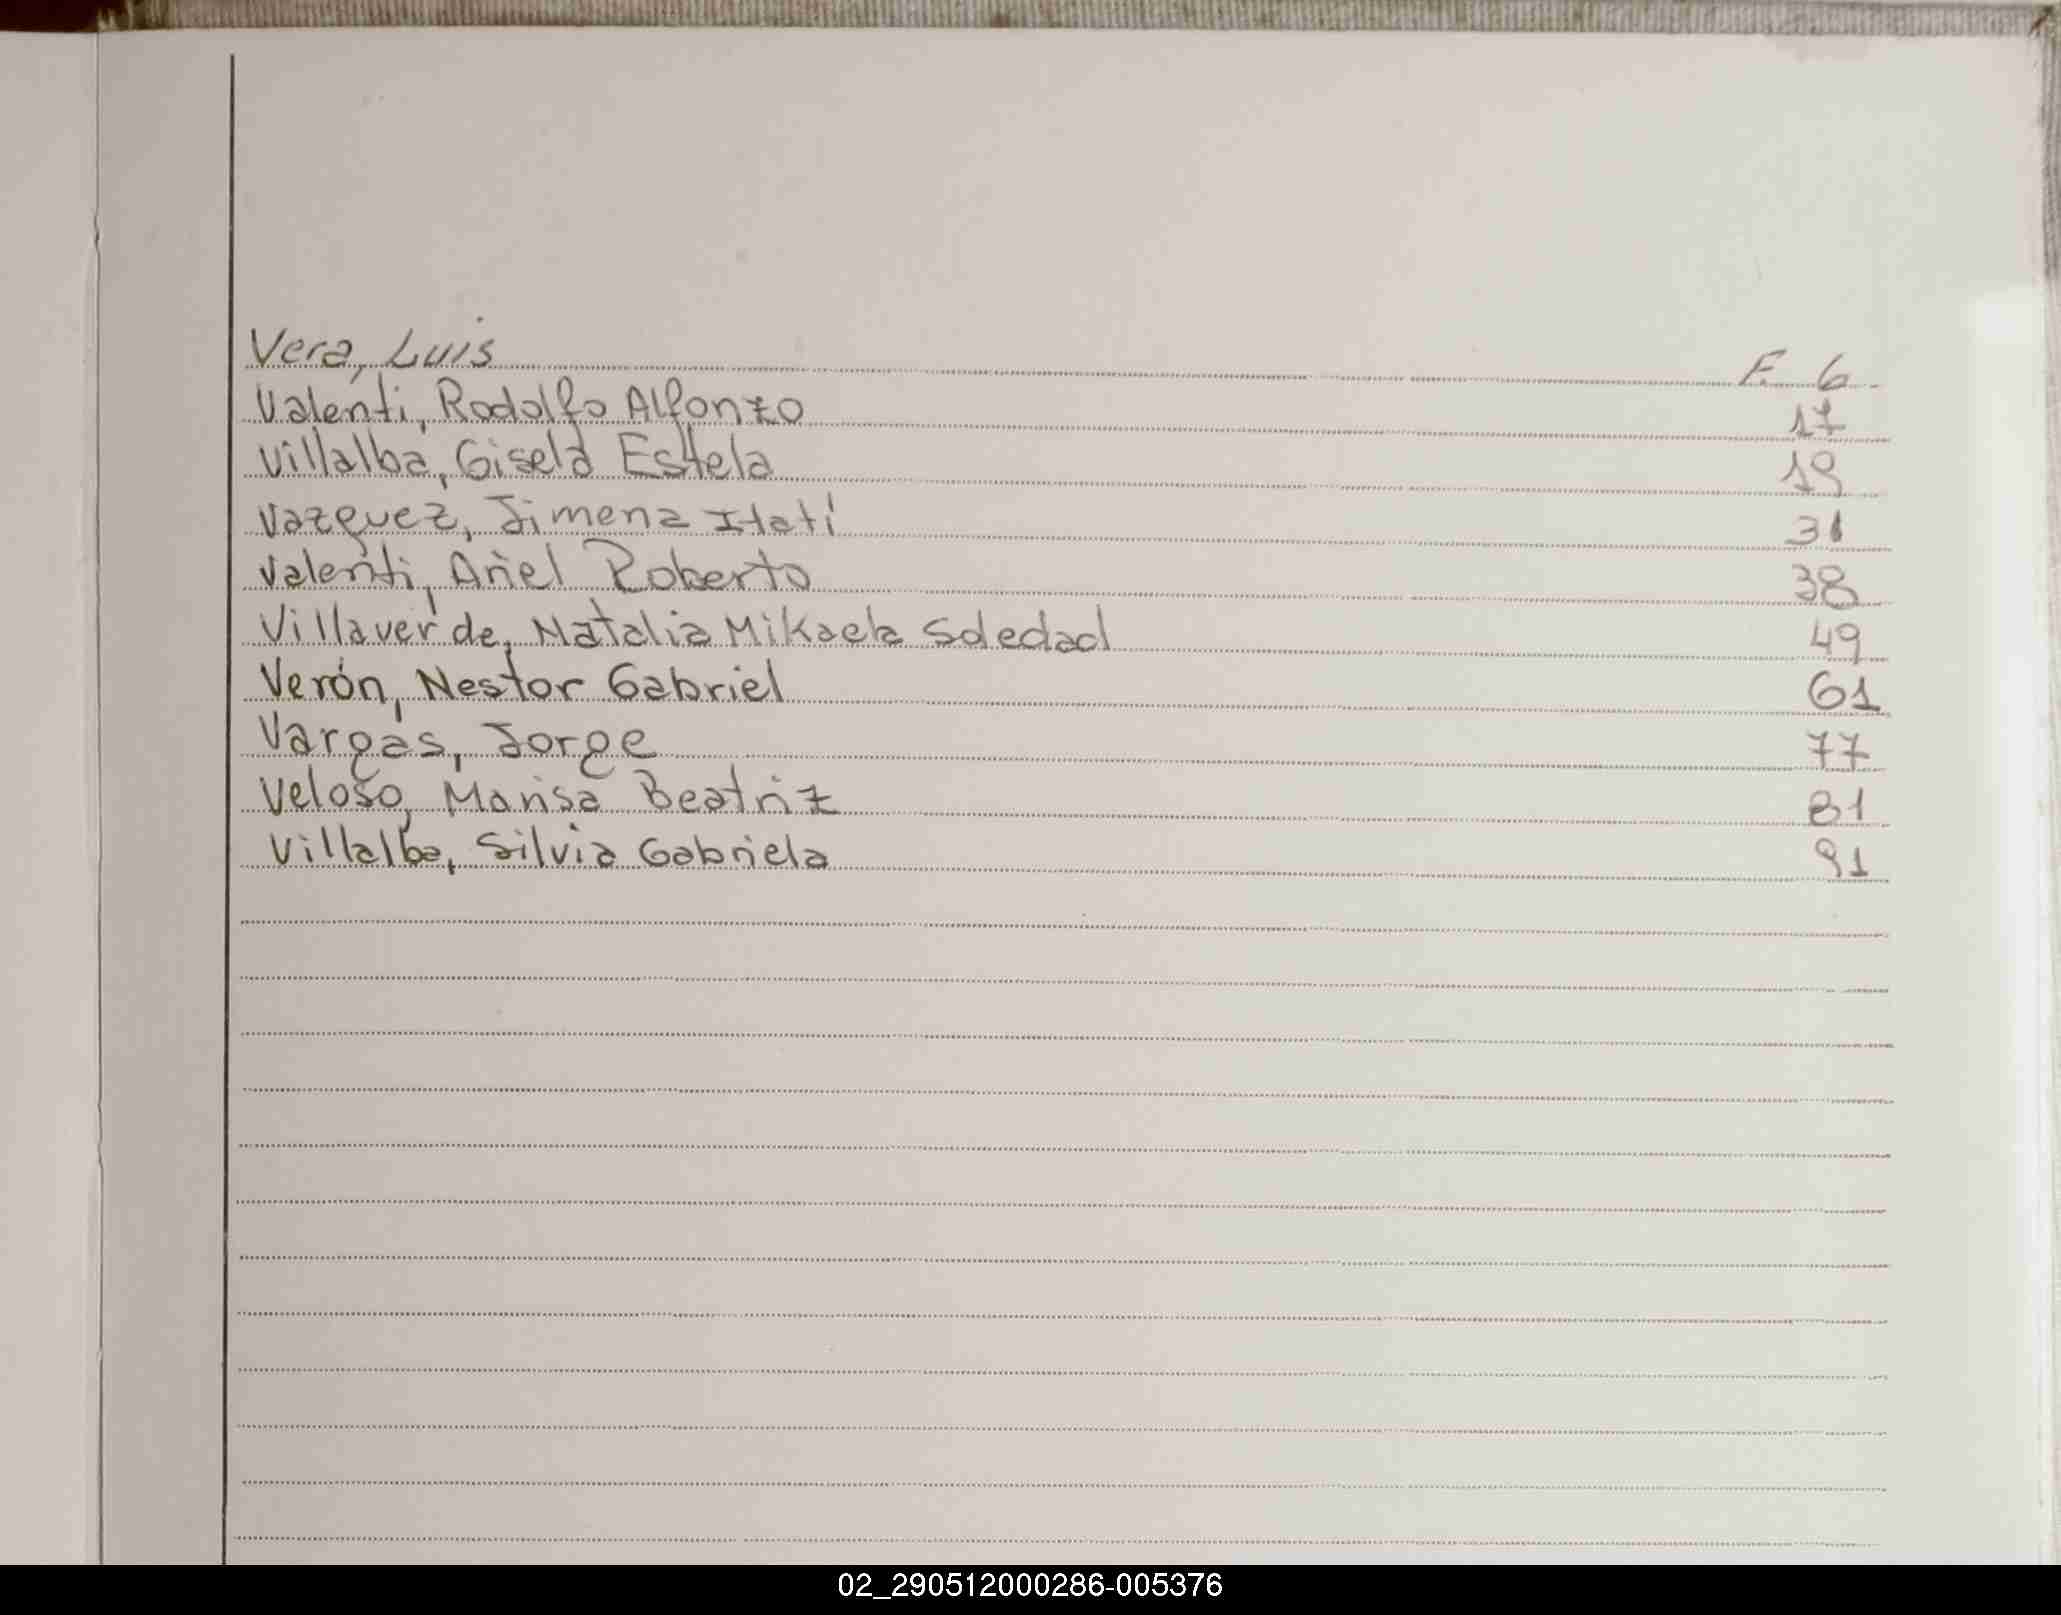 Vera, Luis F. 6
Valenti, Rodolfo Alfonzo 17
Villalba, Gisela Estela 19
Vazquez, Jimena Itatí 31
Valenti, Ariel Roberto 38
Villaverde, Natalia Mikaela Soledad 49
Verón, Nestor Gabriel 61
Vargas, Jorge 77
Veloso, Marisa Beatriz 81
Villalba, Silvia Gabriela 91
02_290512000286-005376